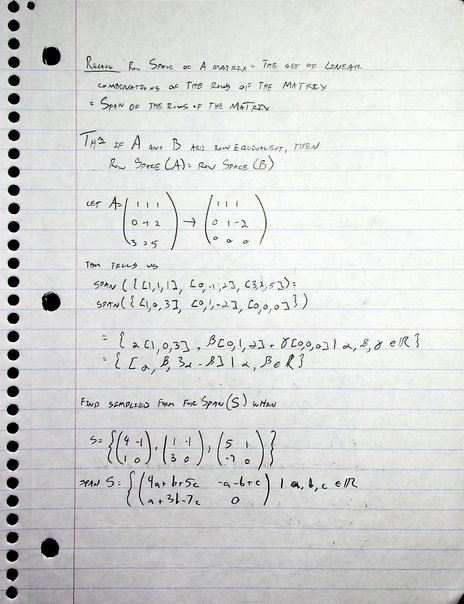 RECALL ROW SPACE OF A MATRIX = THE SET OF LINEAR
COMBINATIONS OF THE ROWS OF THE MATRIX
= SPAN OF THE ROWS OF THE MATRIX
THM IF A AND B ARE ROW EQUIVALENT, THEN
ROW SPACE (A) = ROW SPACE (B)
LET A = ( 1 1 1 ) → ( 1 1 1 )
0 -1 2 0 1 -2
3 2 5 0 0 0
THM TELLS US
SPAN ( { [1,1,1], [0,-1,2], [3,2,5] } ) =
SPAN ( { [1,0,3], [0,1,-2], [0,0,0] } )
= { α [1,0,3] + β[0,1,2] + γ[0,0,0] | α, β, γ ∈ ℝ }
= { [α, β, 3α - β] | α, β ∈ ℝ }
FIND SIMPLIED FORM FOR SPAN (S) WHEN
S = { ( 4 -1 ), ( 1 -1 ), ( 5 1 ) }
1 0 3 0 -7 0
SPAN S = { ( 4a+b+5c -a-b+c ) | a, b, c ∈ ℝ
a+3b-7c 0